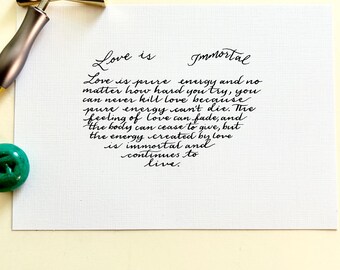 Love is Immortal
Love is pure energy and no
matter how hard you try, you
can never kill love because
pure energy can't die. The
feeling of Love can fade, and
the body can cease to give, but
the energy created by love
is immortal and
continues to
live.